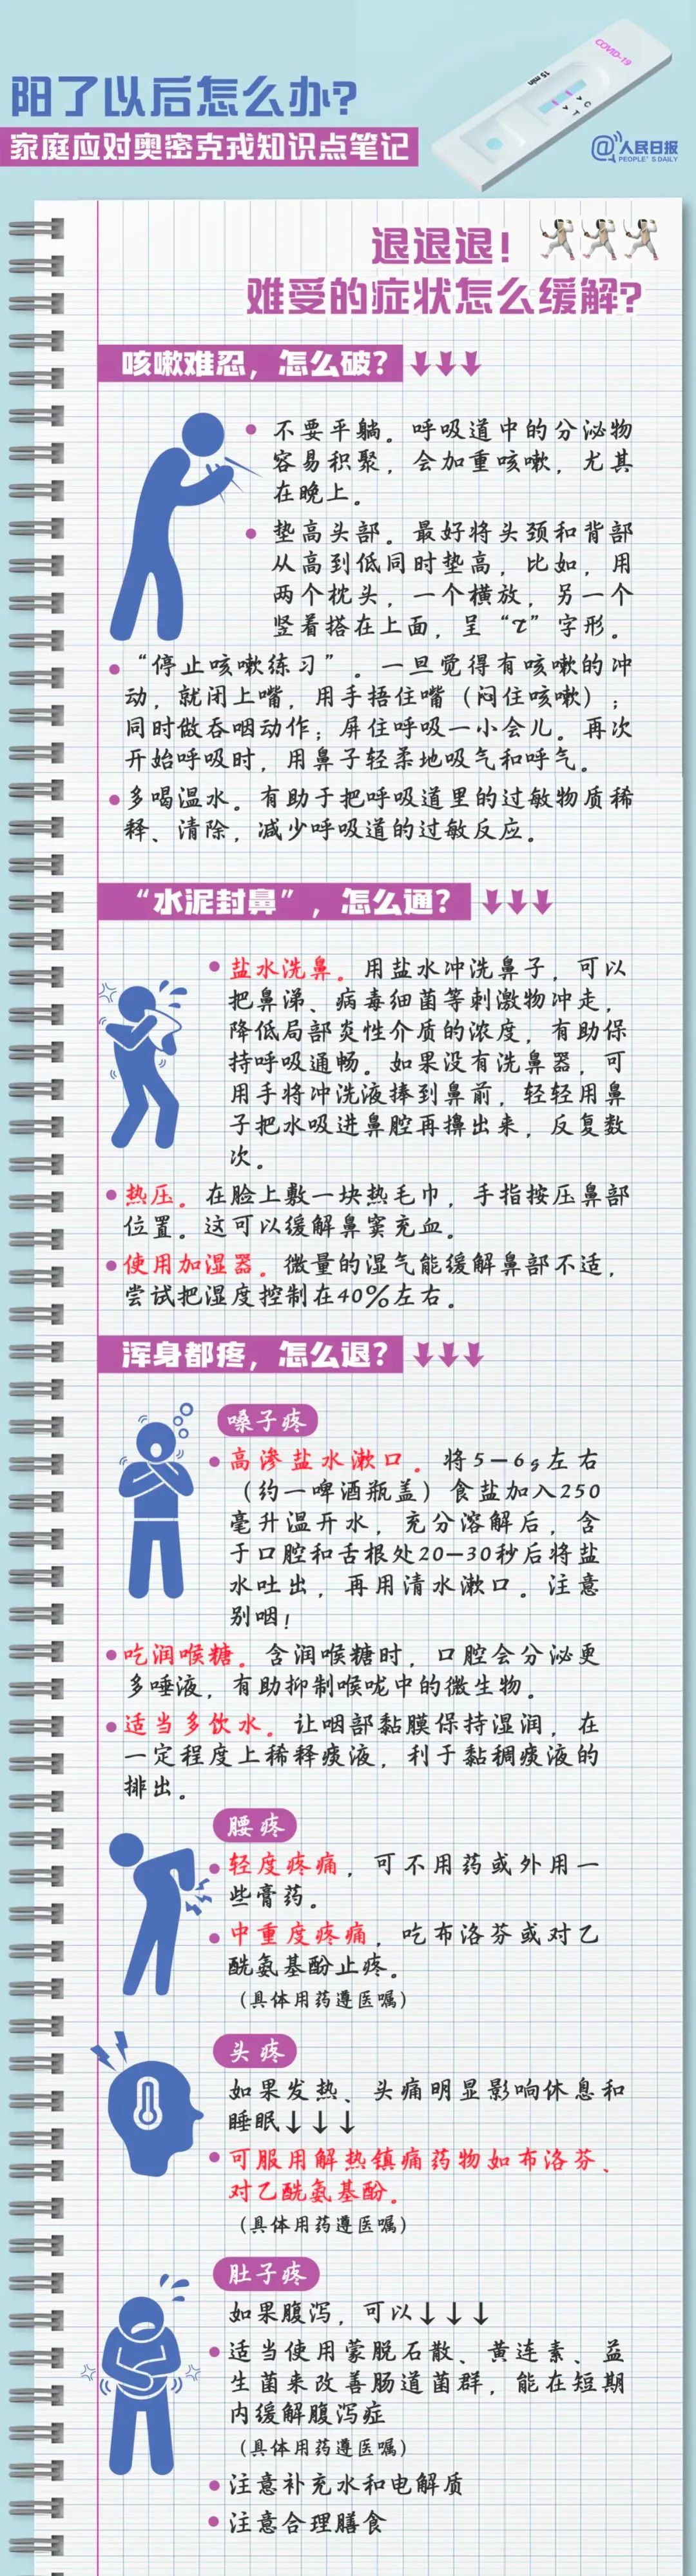 阳了以后怎么办?
家庭应对奥密克戎知识点笔记
COVID-19
15 min
C
T
@人民日报
PEOPLE'S DAILY
退退退!
难受的症状怎么缓解?
咳嗽难忍，怎么破?
不要平躺。呼吸道中的分泌物
容易积聚，会加重咳嗽，尤其
在晚上。
垫高头部。最好将头颈和背部
从高到低同时垫高，比如，用
两个枕头，一个横放，另一个
竖着搭在上面，呈“τ”字形。
“停止咳嗽练习”。一旦觉得有咳嗽的冲
动，就闭上嘴，用手捂住嘴（闷住咳嗽）；
同时做吞咽动作；屏住呼吸一小会儿。再次
开始呼吸时，用鼻子轻柔地吸气和呼气。
多喝温水。有助于把呼吸道里的过敏物质稀
释、清除，减少呼吸道的过敏反应。
“水泥封鼻”，怎么通?
盐水洗鼻。用盐水冲洗鼻子，可以
把鼻涕、病毒细菌等刺激物冲走，
降低局部炎性介质的浓度，有助保
持呼吸通畅。如果没有洗鼻器，可
用手将冲洗液捧到鼻前，轻轻用鼻
子把水吸进鼻腔再擤出来，反复数
次。
热压。在脸上敷一块热毛巾，手指按压鼻部
位置。这可以缓解鼻窦充血。
使用加湿器。微量的湿气能缓解鼻部不适，
尝试把湿度控制在40%左右。
浑身都疼，怎么退?
嗓子疼
高渗盐水漱口。将5—6g左右
（约一啤酒瓶盖）食盐加入250
毫升温开水，充分溶解后，含
于口腔和舌根处20—30秒后将盐
水吐出，再用清水漱口。注意
别咽!
吃润喉糖。含润喉糖时，口腔会分泌更
多唾液，有助抑制喉咙中的微生物。
适当多饮水。让咽部黏膜保持湿润，在
一定程度上稀释痰液，利于黏稠痰液的
排出。
腰疼
轻度疼痛，可不用药或外用一
些膏药。
中重度疼痛，吃布洛芬或对乙
酰氨基酚止疼。
（具体用药遵医嘱）
头疼
如果发热、头痛明显影响休息和
睡眠↓↓↓
可服用解热镇痛药物如布洛芬、
对乙酰氨基酚。
（具体用药遵医嘱）
肚子疼
如果腹泻，可以↓↓↓
适当使用蒙脱石散、黄连素、益
生菌来改善肠道菌群，能在短期
内缓解腹泻症
（具体用药遵医嘱）
注意补充水和电解质
注意合理膳食